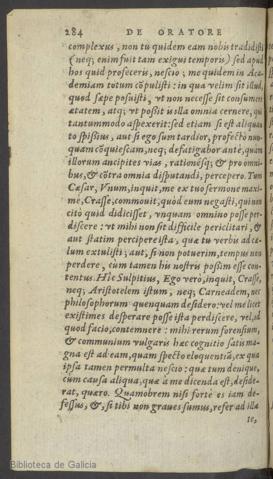 284 DE ORATORE
complexus, non tu quidem eam nobis tradidisti
(neq; enim fuit tam exigui temporis) sed apud
hos quid profeceris, nescio; me quidem in Aca-
demiam totum cõpulisti: in qua velim sit illud,
quod sæpe posuisti, vt non necesse sit consumere
ætatem, atq; vt possit is illa omnia cernere, qui
tantummodo aspexerit: sed etiam si est aliquan-
to spissius, aut si ego sum tardior, profectò nun-
quam cõquiescam, neq; defatigabor antè, quàm
illorum ancipites vias, rationésq; & pro omni-
bus, & cõtra omnia disputandi, percepero. Tum
Cæsar, Vnum, inquit, me ex tuo sermone maxi-
me, Crasse, commouit, quòd eum negasti, qui non
citò quid didicisset, vnquam omnino posse per-
discere: vt mihi non sit difficile periclitari, &
aut statim percipere ista, quæ tu verbis ad cæ-
lum extulisti; aut, si non potuerim, tempus non
perdere, cùm tamen his nostris possim esse con-
tentus. Hîc Sulpitius, Ego verò, inquit, Crasse,
neq; Aristotelem istum, neq; Carneadem, nec
philosophorum quenquam desidero: vel me licet
existimes desperare posse ista perdiscere, vel, id
quod facio, contemnere: mihi rerum forensium,
& communium vulgaris hæc cognitio satis ma-
gna est ad eam, quam specto eloquentiã, ex qua
ipsa tamen permulta nescio: quæ tum denique,
cùm causa aliqua, quæ à me dicenda est, deside-
rat, quæro. Quamobrem nisi fortè es iam de-
fessus, &, si tibi non graues sumus, refer ad illa
te,
Biblioteca de Galicia